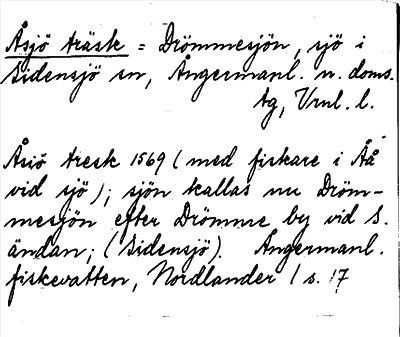 Åsjö träsk = Drömmesjön, sjö i
Sidensjö sn, Ångermanl. n. doms.
tg, Vrnl. l.
Åsiö tresk 1569 (med fiskare i Åå
vid sjö); sjön kallas nu Dröm-
mesjön efter Drömme by vid S.
ändan; (Sidensjö). Ångermanl.
fiskevatten, Nordlander / s. 17